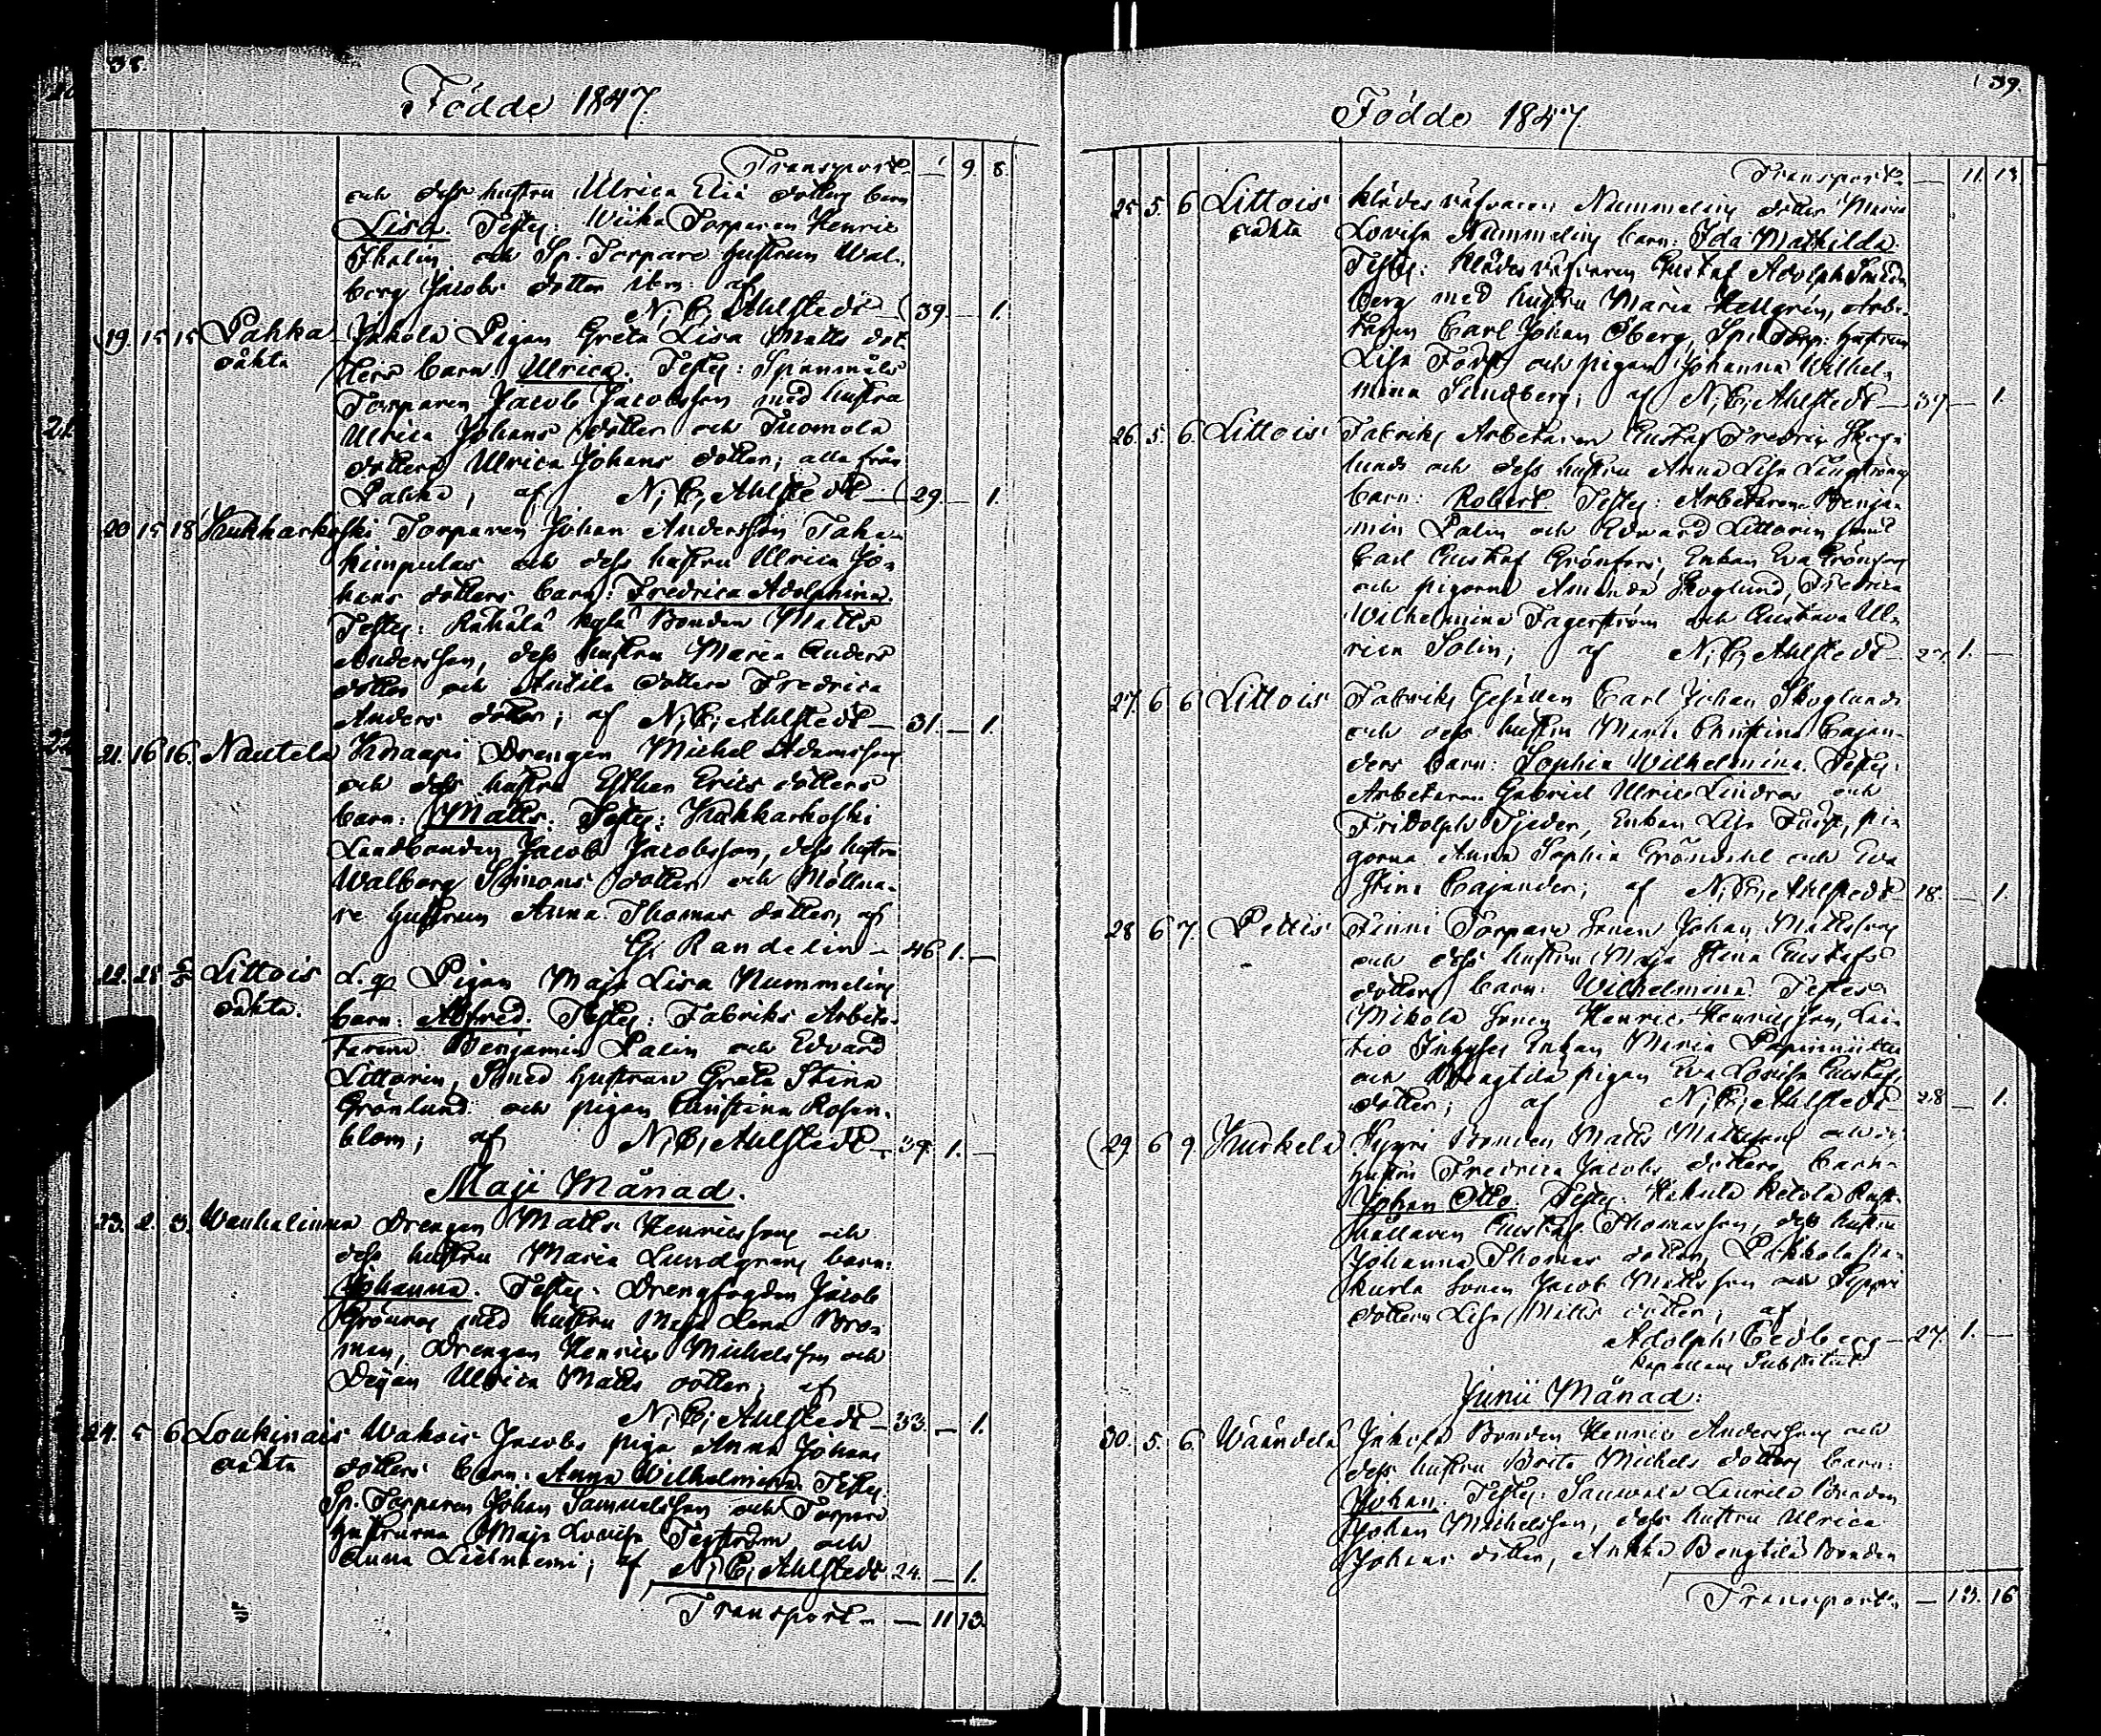 38.
Födde 1847.
Transport — 9. 8.
och dess hustru Ulrica Eliæ dotters barn
Lisa. Testes: Torparen Henric
Thalin och Sp. Torpare hustrun Wal-
borg Jacobs dotter af
N. C. Ahlstedt — 39. — 1.
19. 15 15 Pahka Jakola Pigan Greta Lisa Matts dot-
oäkta ters barn Ulrica. Testes: Spanmåls
Torparen Jacob Jacobsson med hustru
Ulrica Johans dotter och Tuomola
dottern Ulrica Johans dotter; alla från
Pahka; af N. C. Ahlstedt — 29. — 1.
20 15 18 Kukkarkoski Torparen Johan Andersson Taka-
kimpulas och dess hustru Ulrica Jo-
hans dotters barn: Fredrica Adolphina.
Testes: Bonden Matts
Andersson, dess hustru Maria Anders
dotter och Anttila dottern Fredrica
Anders dotter; af N. C. Ahlstedt — 31. — 1.
21. 16 16. Nautela Knaapi Drengen Michel Adamsson
och dess hustru Esther Erics dotters
barn: Matts. Testes: Kukkarkoski
Landbonden Jacob Jacobsson, dess hustru
Walborg Simons dotter och Möllna-
re hustrun Anna Thomas dotter, af
G. Randelin — 46 1. —
22. 28. Littois L. q. Pigan Maja Lisa Nummelins
oäkta. barn: Alfred. Testes: Fabriks Arbeta-
Benjamin Palin och Edvard
Littorin, Smed hustrun Greta Stina
Grönlund och pigan Christina Rosen-
blom; af N. C. Ahlstedt — 39. 1. —
Maji Månad.
23. 2. 3. Wanhalinna Drengen Matts Henricsson och
dess hustru Maria Lundgrens barn:
Johanna. Testes: Drengfogden Jacob
Grönroos med hustru Maja Lena Bro-
man, Drengen Henric Michelsson och
Dejan Ulrica Matts dotter; af
N. C. Ahlstedt — 33. — 1.
24. 5 6 Loukinais Wakois Jacobs piga Anna Johans
oäkta dotters barn: Anna Wilhelmina. Testes:
Sp. Torparen Johan Samuelsson och Torpare
hustrurna Maja Lovisa Tegström och
Anna Liehniemi; af N. C. Ahlstedt 24. — 1.
Transport — 11 13.
39.
Födde 1847
Transport — 11. 13.
25 5. 6 Littois Klädesväfvaren Nummelins dotter Maria
oäkta Lovisa Nummelins barn: Ida Mathilda.
Testes: Klädesväfvaren Gustaf Adolph
berg med hustru Maria Hellgrén, Arbe-
taren Carl Johan Öberg, Sp. Torp. hustrun
Lisa och pigan Johanna Wilhel-
mina Sundberg; af N. C. Ahlstedt — 37. — 1.
26. 5. 6. Littois Fabriks Arbetaren Gustaf Fredric Skog-
lunds och dess hustru Anna Lisa
barn: Robert. Testes: Arbetarena Benja-
min Palin och Edvard Littorin
Carl Gustaf Grönfors, Enkan Eva Grönfors
och pigorna Amanda Skoglund, Fredrica
Wilhelmina Fagerström och Gustava Ul-
rica Solin; af N. C. Ahlstedt — 27. 1. —
27. 6 6 Littois Fabriks Gesällen Carl Johan Skoglunds
och dess hustru Maria Christina Cajan-
ders barn: Sophia Wilhelmina. Testes:
Arbetaren Gabriel Ulric Lindroos och
Fridolph Tjeder, Enkan Lisa pi-
gorna Anna Sophia Gröndahl och Eva
Stina Cajander; af N. C. Ahlstedt — 18. — 1.
28 6 7. Pettis Finni Torpare Sonen Johan Mattsson
och dess hustru Maja Stina Gustafs
dotters barn: Wilhelmina. Testes:
Mikola Sonen Henric Henricsson,
Inhyses Enkan Maria
och Bengtila pigan Eva Lovisa Gustafs
dotter; af N. C. Ahlstedt — 28 — 1.
29. 6 9. Kurkela Bonden Matts Mattsson och
hustru Fredrica Jacobs dotters barn
Johan Otto. Testes: Ketola Rust-
hållaren Gustaf Thomasson, dess hustru
Johanna Thomas dotter,
Sonen Jacob Mattsson och
dottern Lisa Matts dotter; af
Adolph Cedberg — 27. 1. —
Kapellans Substitut
Junii Månad:
30. 5. 6. Wäändelä Jakola Bonden Henric Andersson och
dess hustru Brita Michels dotters barn:
Johan. Testes: Sauwala Laurila Bonden
Johan Michelsson, dess hustru Ulrica
Johans dotter, Bengtilä Bonden
Transport — 13. 16